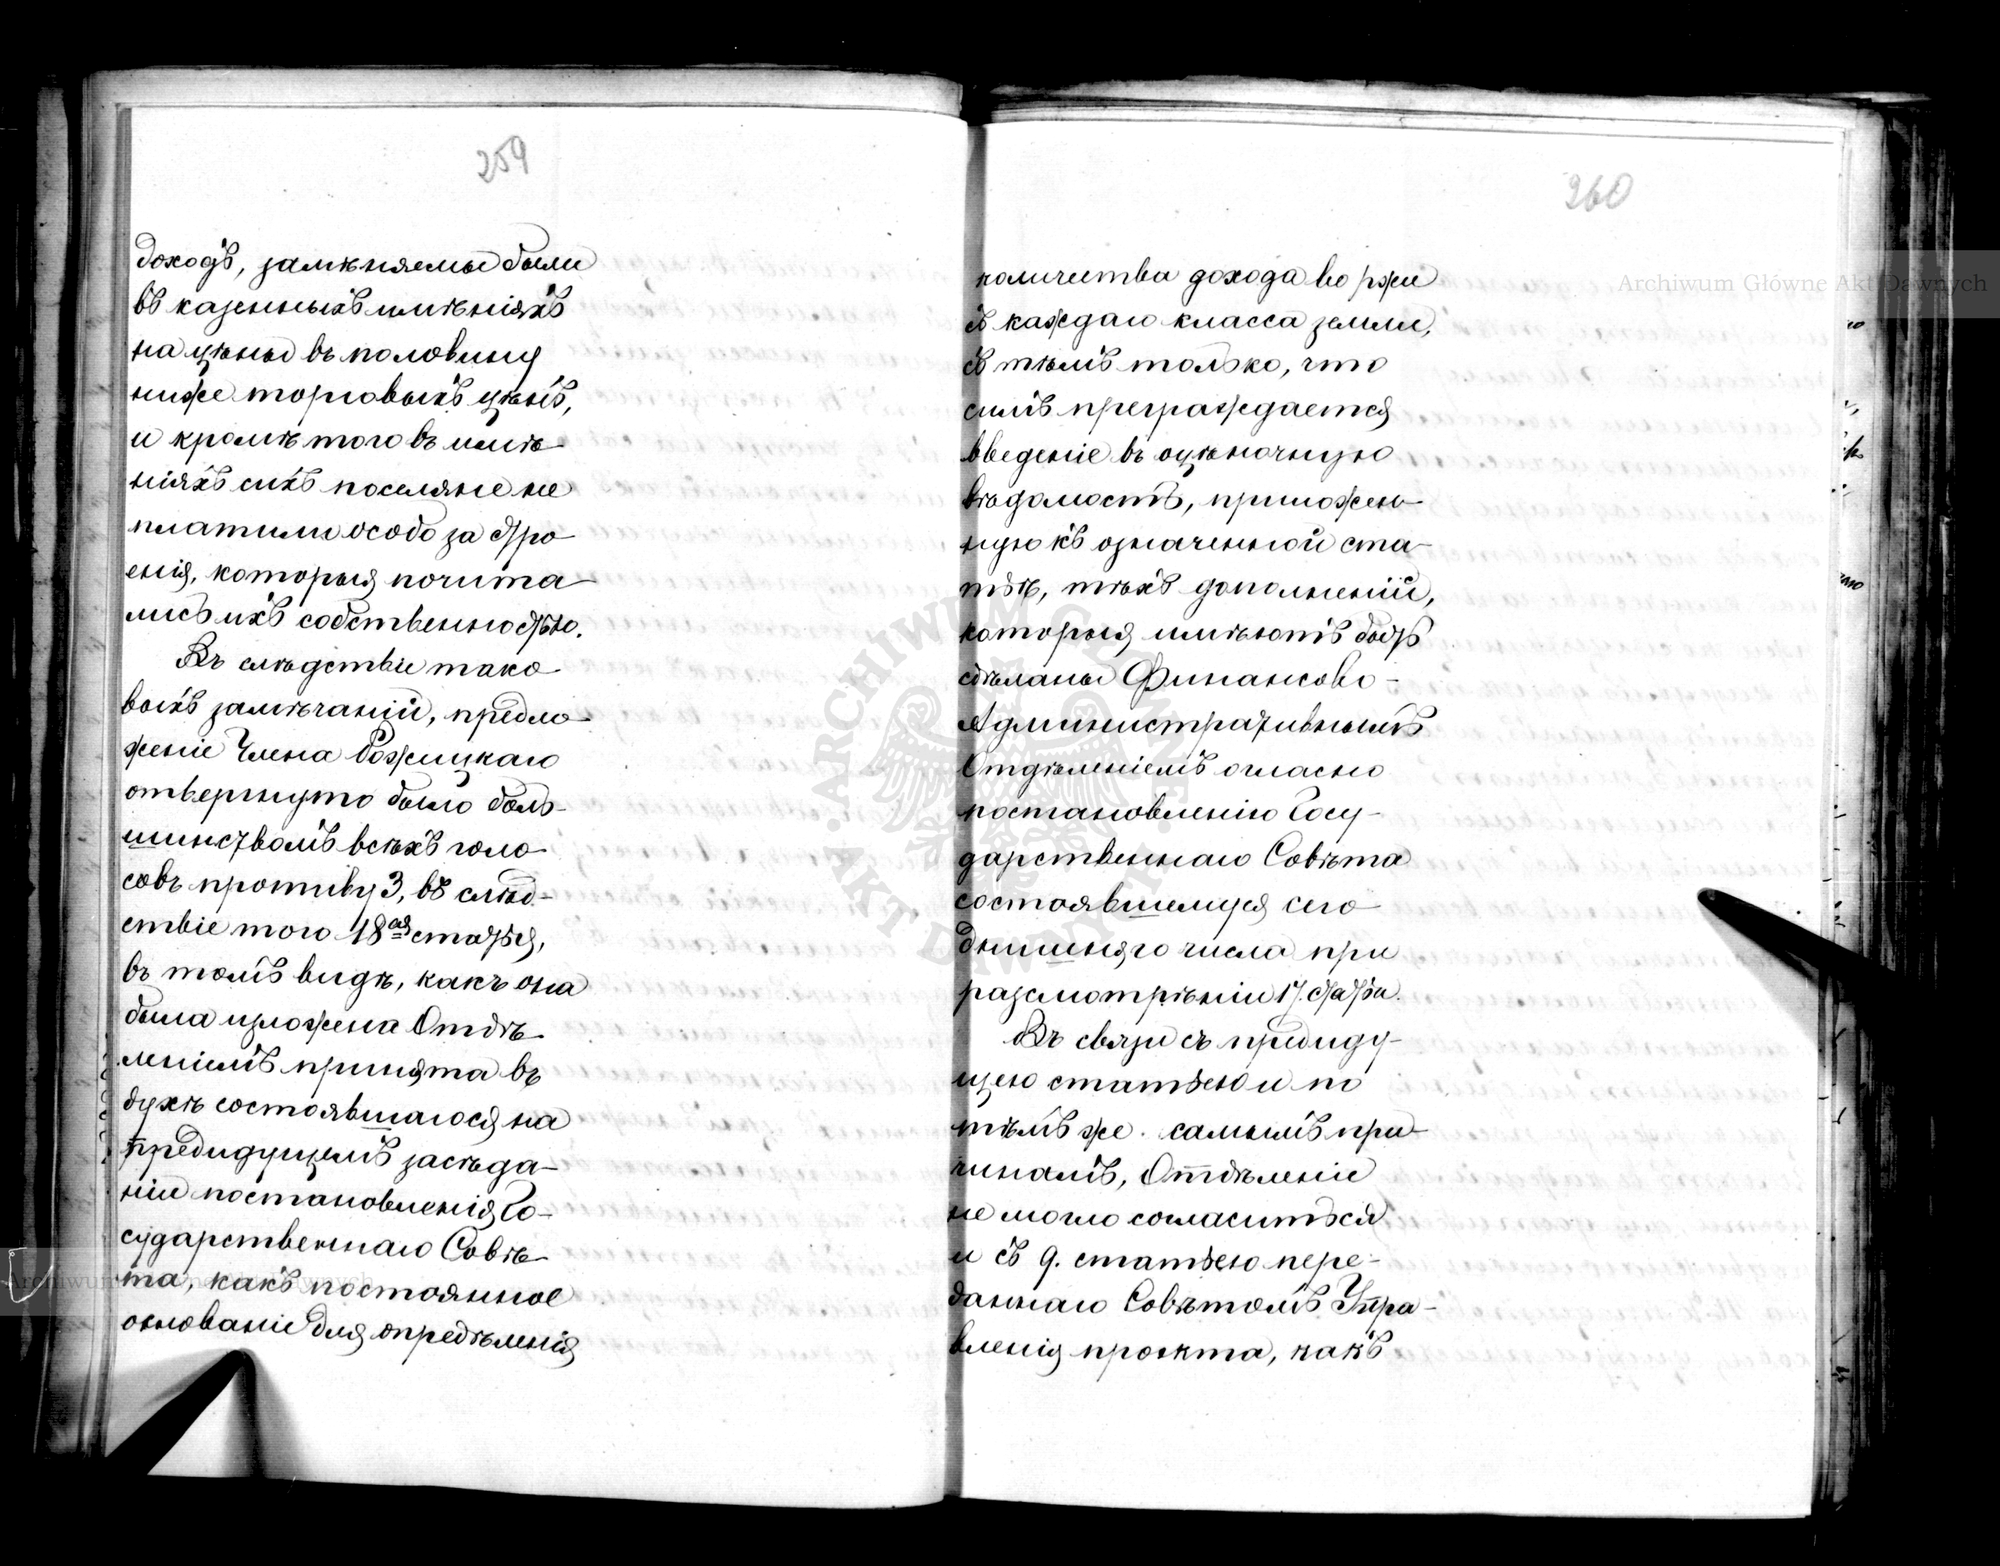 259
доходъ, замѣняемы были
въ казенныхъ имѣніяхъ
на цѣны въ половину
ниже торговыхъ цѣнъ,
и кромѣ того въ имѣ-
ніяхъ сихъ поселяне не
платили особо за стро-
енія, которыя почита-
лись ихъ собственностью.
Въ слѣдствіе тако-
выхъ замѣчаній, предло-
женіе Члена Рожицкаго
отвергнуто было боль-
шинствомъ всѣхъ голо-
совъ противу 3, въ слѣд-
ствіе того 18ая статья,
въ томъ видѣ, какъ она
была изложена Отдѣ-
леніемъ принята въ
духѣ состоявшагося на
предидущемъ засѣда-
ніи постановленія Го-
сударственнаго Совѣ-
та, какъ постоянное
основаніе для опредѣленія
260
количества дохода во ржи
съ каждаго класса земли,
съ тѣмъ только, что
симъ преграждается
введеніе въ оцѣночную
вѣдомость, приложен-
ную къ означенной ста-
тьѣ, тѣхъ дополненій,
которыя имѣютъ быть
сдѣланы Финансово-
Административнымъ
Отдѣленіемъ согласно
постановленію Госу-
дарственнаго Совѣта
состоявшемуся сего-
днишняго числа при
разсмотрѣніи 17. статьи.
Въ связи съ предиду-
щею статьею и по
тѣмъ же самымъ при-
чинамъ, Отдѣленіе
не могло согласиться
и съ 9. статьею пере-
даннаго Совѣтомъ Упра-
вленія проэкта, какъ
Archiwum Główne Akt Dawnych
Archiwum Główne Akt Dawnych
ARCHIWUM GŁÓWNE AKT DAWNYCH